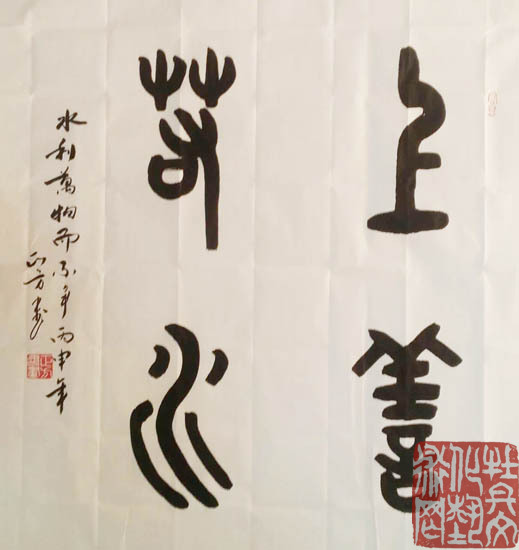 上善
若水
水利萬物而不争丙申年
正方书